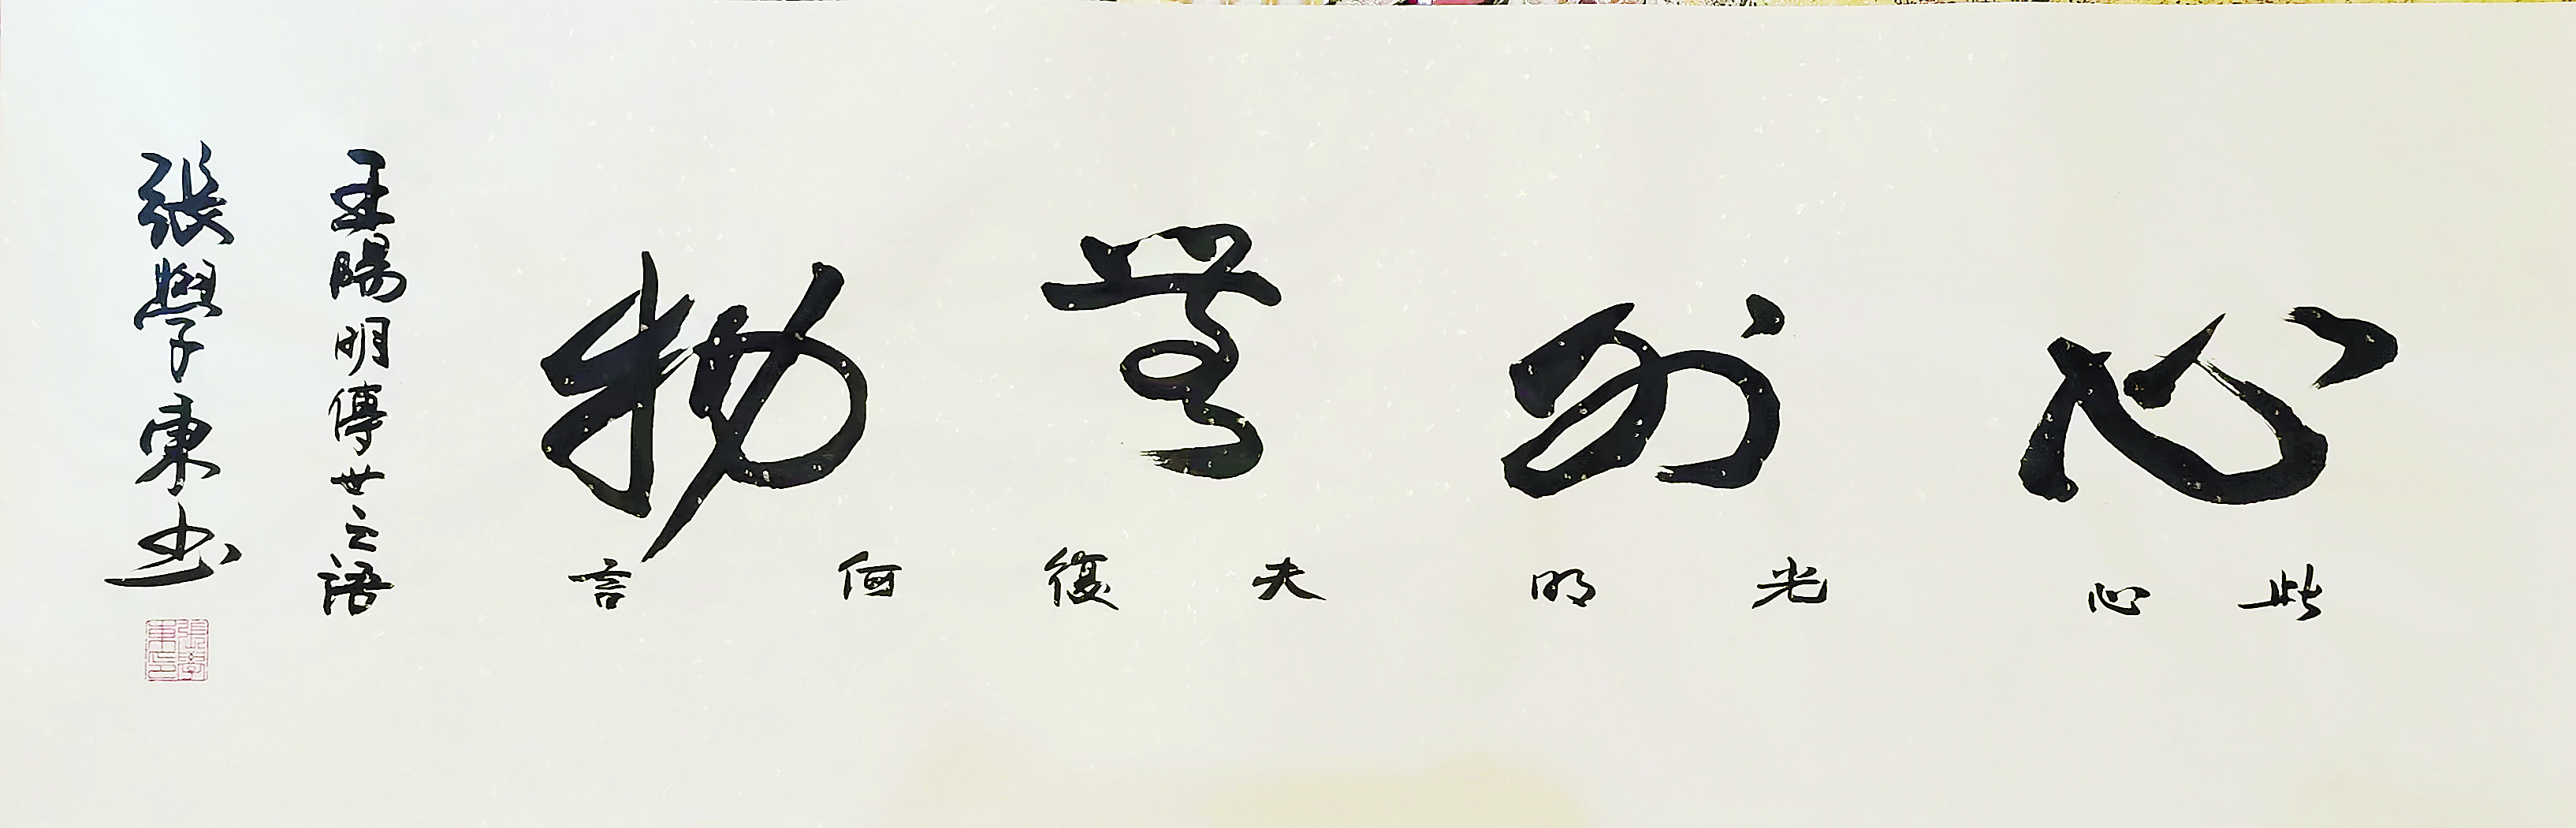 心外無物
此心光明夫復何言
王陽明傳世之語
張學東书
張學東印